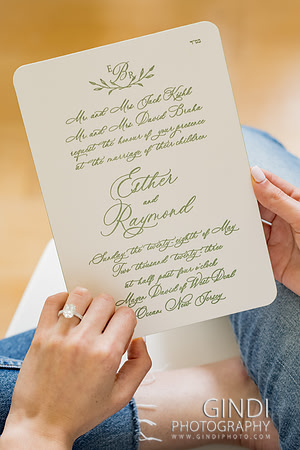 בס"ד
E B R
Mr. and Mrs. Jack
Mr. and Mrs. David Braha
request the honour of your presence
at the marriage of their children
Esther
and
Raymond
Sunday the twenty eighth of May
Two thousand twenty three
at half past four o'clock
Magen David of West Deal
Ocean, New Jersey
GINDI
PHOTOGRAPHY
WWW.GINDIPHOTO.COM